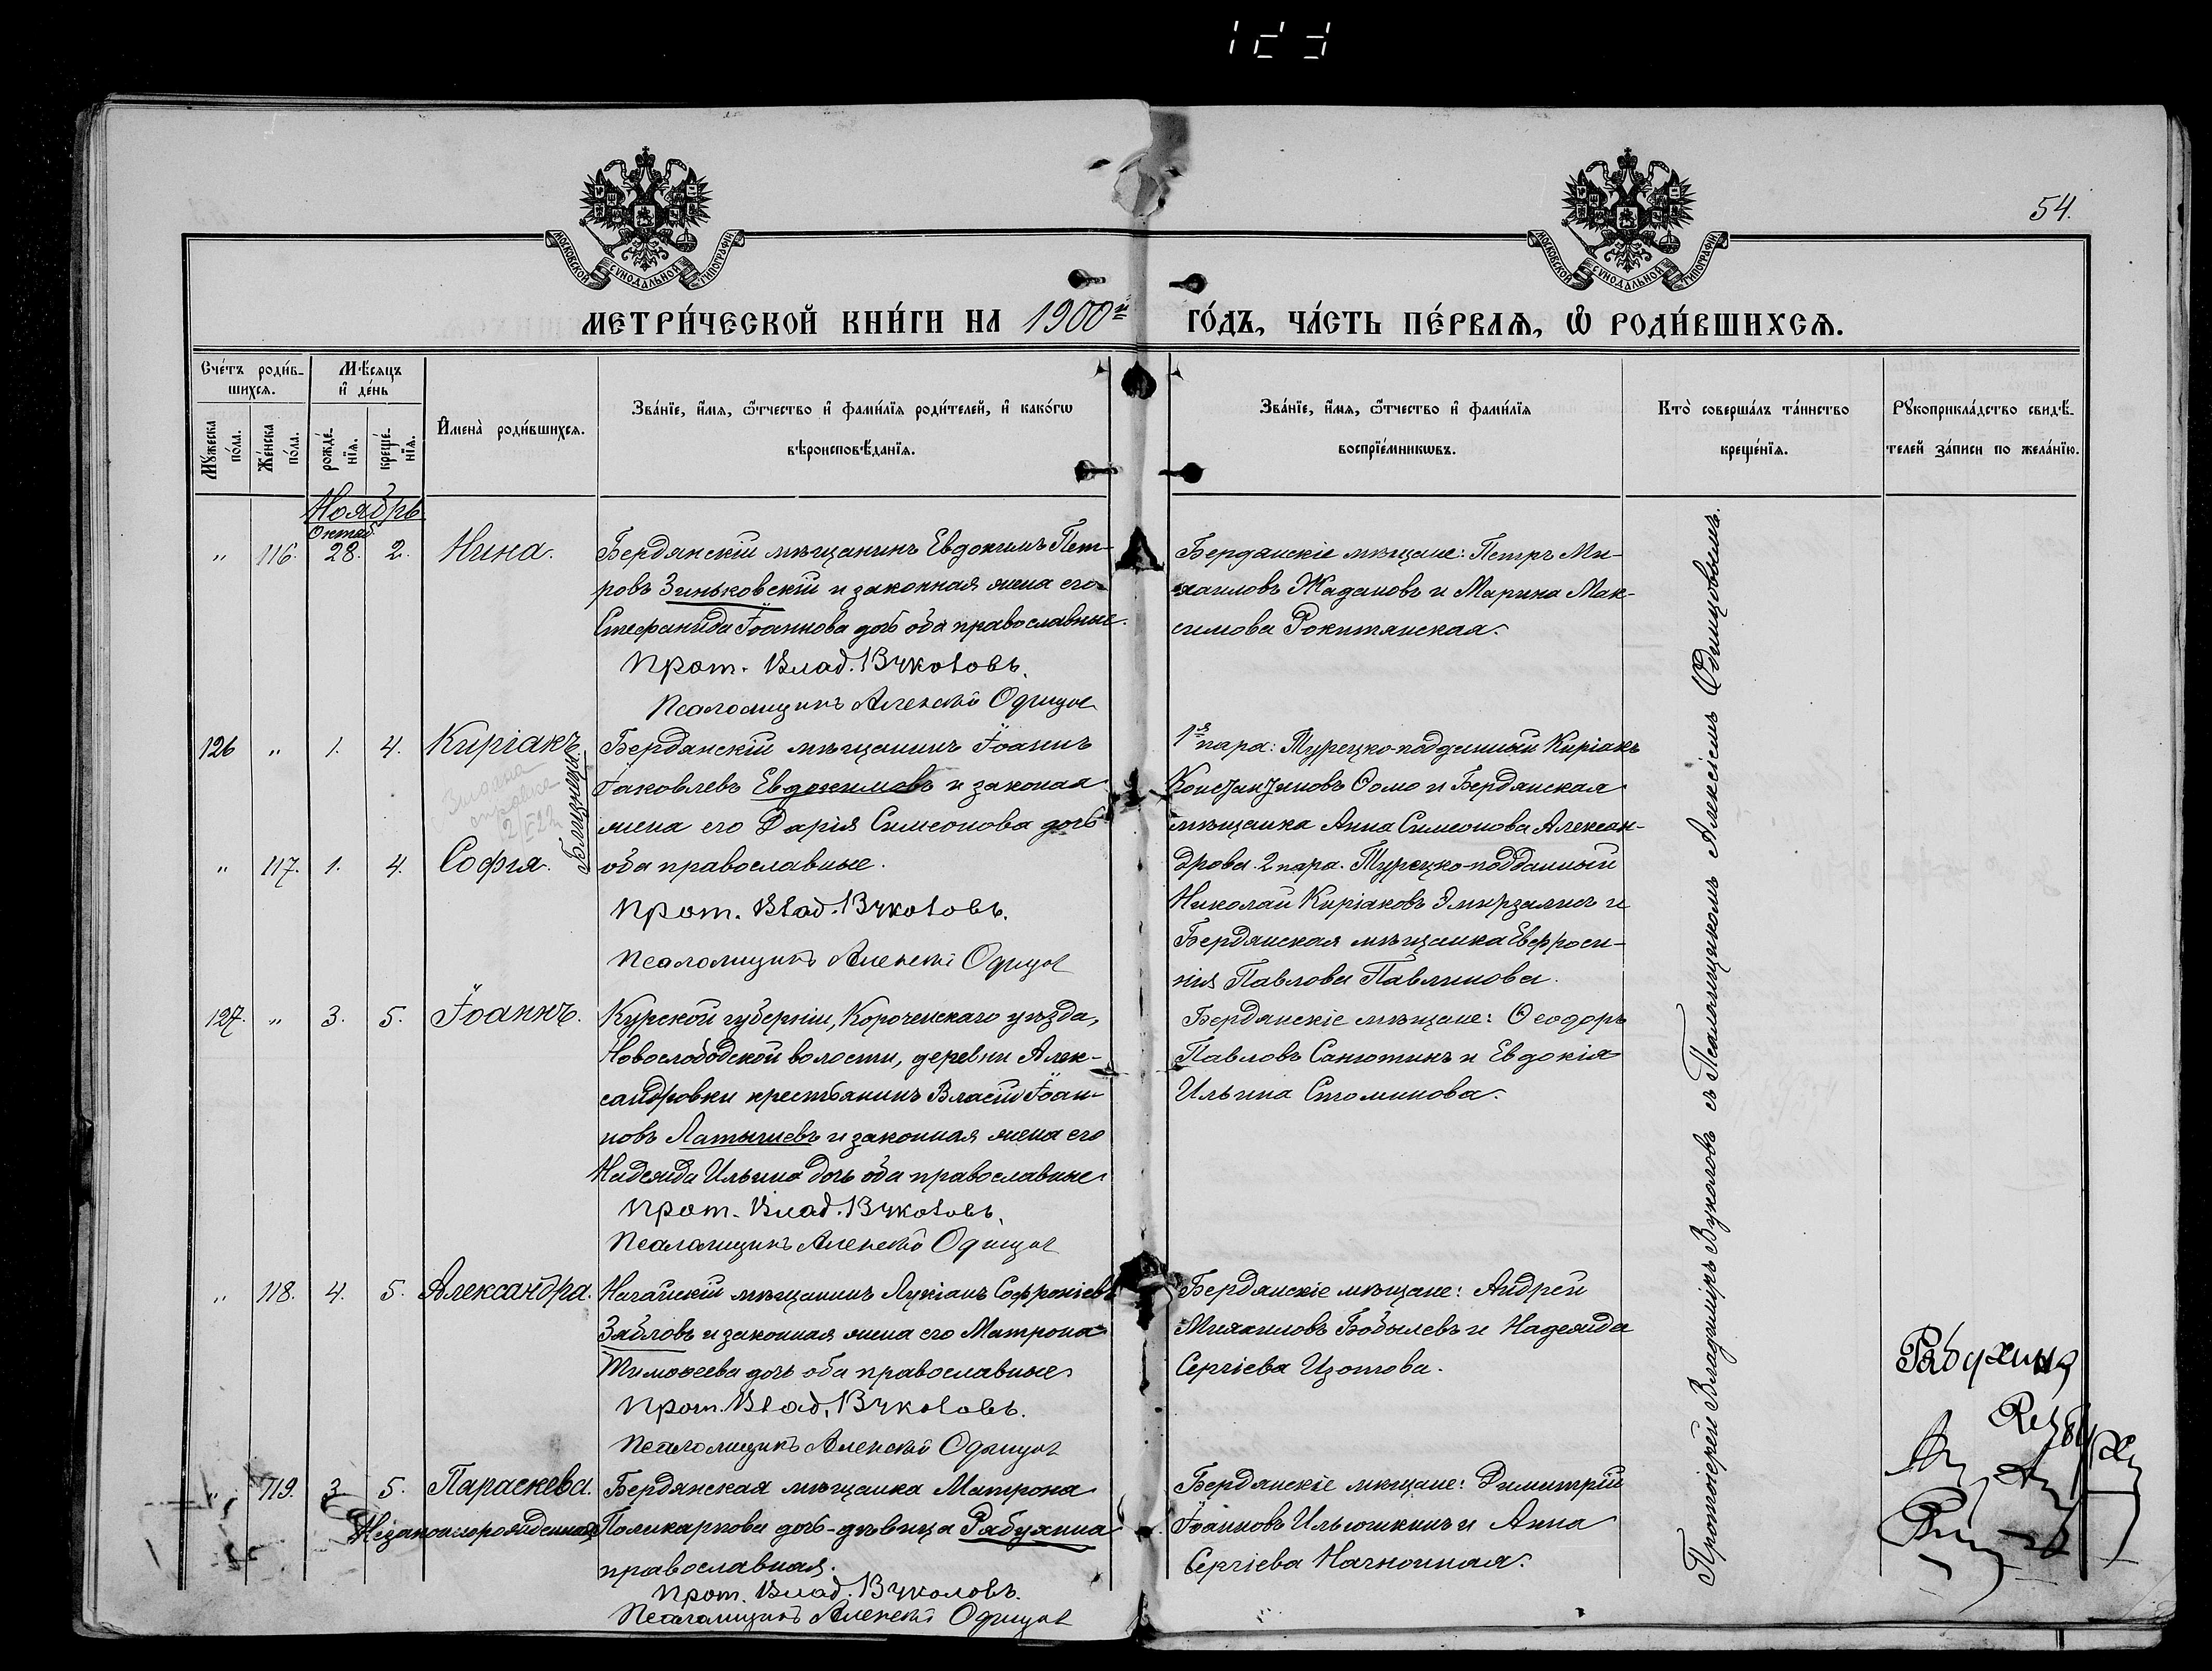 54.
МОСКОВСКОЙ СУНОДАЛЬНОЙ ТИПОГРАФІИ
МОСКОВСКОЙ СУНОДАЛЬНОЙ ТИПОГРАФІИ
МЕТРИ́ЧЕСКОЙ КНИ́ГИ НА 1900й ГО́ДЪ, ЧА́СТЬ ПЕ́РВАѦ, Ѽ РОДИ́ВШИХСѦ.
Сче́тъ роди́в-
шихсѧ.
Мꙋжеска по́ла.
Же́нска по́ла.
Мѣ́сяцъ
и҆ де́нь
рожде́-
нїѧ.
креще́-
нїѧ.
И҆мена̀ роди́вшихсѧ.
Зва́нїе, и҆́мѧ, ѻ҆́тчество и҆ фами́лїѧ роди́телей, и҆ како́гѡ
вѣроисповѣ́данїѧ.
Зва́нїе, и҆́мѧ, ѻ҆́тчество и҆ фами́лїѧ
воспрїе́мникѡвъ.
Кто̀ соверша́лъ та́инство
креще́нїѧ.
Рꙋкоприкла́дство свидѣ́-
телей за́писи по жела́нїю.
Ноябрь
Октяб.
" 116. 28. 2. Нина.
Бердянскій мѣщанинъ Евдокимъ Пет-
ровъ Зиньковскій и законная жена его
Стефанида Іоаннова дочь оба православные.
Прот. Влад. Вуколовъ.
Псаломщикъ Алексѣй Одинцов
Бердянскіе мѣщане: Петръ Ми-
хаиловъ Жадановъ и Марина Мак-
симова Рокитянская.
126 " 1. 4. Киріакъ
Близнецы.
" 117. 1. 4. Софія.
Бердянскій мѣщанинъ Іоаннъ
Іаковлевъ Евдокимовъ и законая
жена его Дарія Симеонова дочь
оба православные.
Прот. Влад. Вуколовъ.
Псаломщикъ Алексѣй Одинцов
1я пара: Турецко-подданный Киріакъ
Константиновъ Ѳомо и Бердянская
мѣщанка Анна Симеонова Алексан-
дрова. 2 пара. Турецко-подданный
Николай Киріаковъ Эмирзалис и
Бердянская мѣщанка Евфроси-
нія Павлова Павлинова.
127. " 3. 5. Іоаннъ.
Курской губерніи, Короченскаго уѣзда,
Новослободской волости, деревни Алек-
сандровки крестьянинъ Власій Іоан-
новъ Латышевъ и законная жена его
Надежда Ильина дочь оба православные.
Прот. Влад. Вуколовъ.
Псаломщикъ Алексѣй Одинцов
Бердянскіе мѣщане: Ѳеодоръ
Павловъ Санютинъ и Евдокія
Ильина Стоминова.
" 118. 4. 5. Александра.
Ногайскій мѣщанинъ Лукіанъ Софроніевъ
Зябловъ и законная жена его Матрона
Тимоѳеева дочь оба православные.
Прот. Влад. Вуколовъ.
Псаломщикъ Алексѣй Одинцов
Бердянскіе мѣщане: Андрей
Михаиловъ Бобылевъ и Надежда
Сергіева Изотова.
" 119. 3. 5. Параскева.
Незаконнорожденная
Бердянская мѣщанка Матрона
Поликарпова дочь-дѣвица Рябухина
православная.
Прот. Влад. Вуколовъ.
Псаломщикъ Алексѣй Одинцов
Бердянскіе мѣщане: Димитрій
Іоанновъ Ильюшкинъ и Анна
Сергіева
Протоіерей Владиміръ Вуколовъ съ Псаломщикомъ Алексіемъ Одинцовымъ.
Рябухина